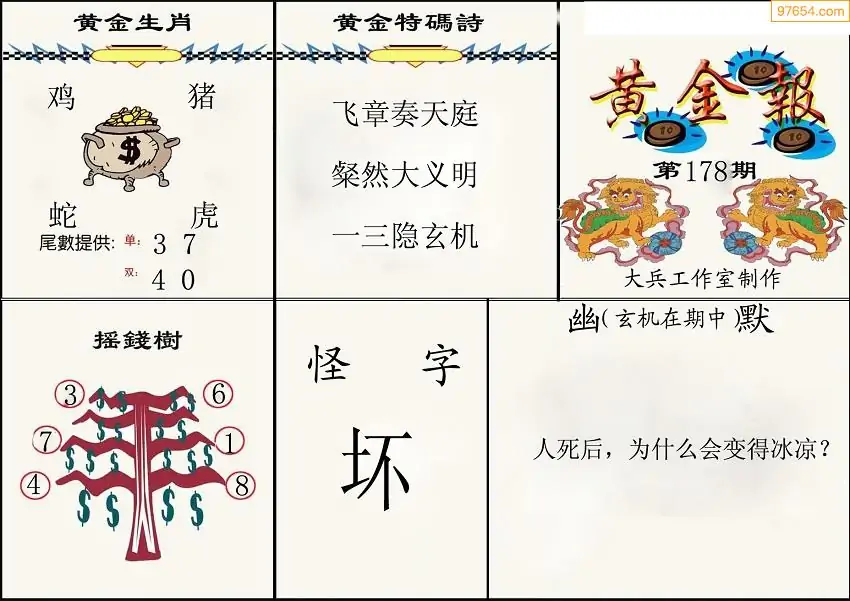 97654.com
黄金生肖
鸡 猪
$
蛇 虎
尾數提供: 单: 3 7
双: 4 0
黄金特碼詩
飞章奏天庭
粲然大义明
一三隐玄机
黄金報
10
10
10
第178期
大兵工作室制作
摇錢樹
3 6
7 1
4 8
$ $ $ $
$ $ $ $
$ $ $ $
$ $ $ $
怪 字
坏
幽(玄机在期中)默
人死后，为什么会变得冰凉？